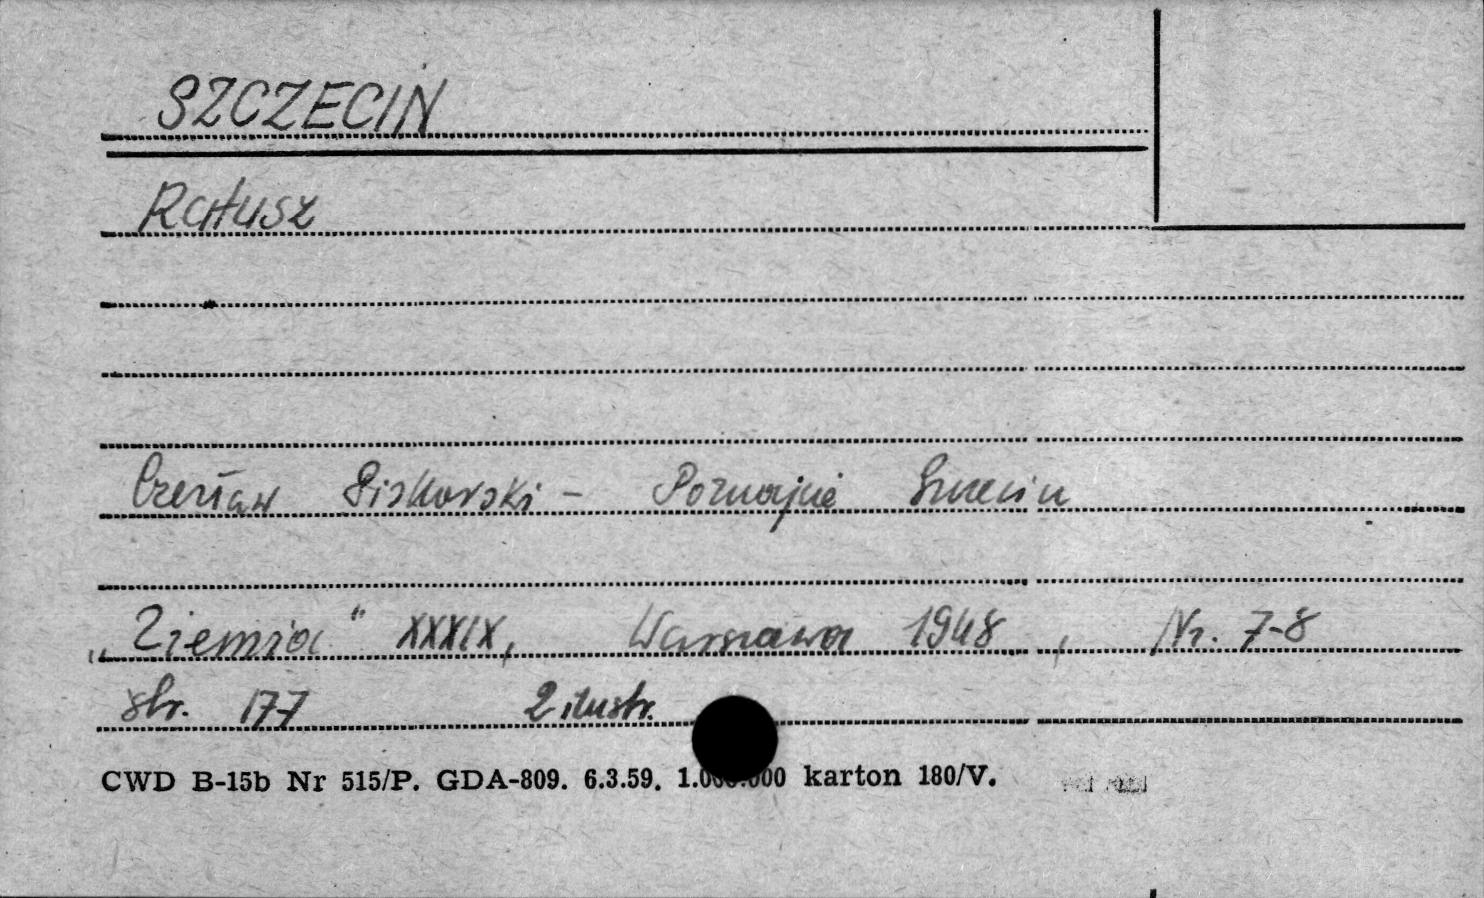 SZCZECIN
Ratusz
Czesław Piskorski - Poznajcie Szczecin
„Ziemia" XXXIX, Warszawa 1948, Nr. 7-8
str. 177 2 ilustr.
CWD B-15b Nr 515/P. GDA-809. 6.3.59. 1.000.000 karton 180/V.